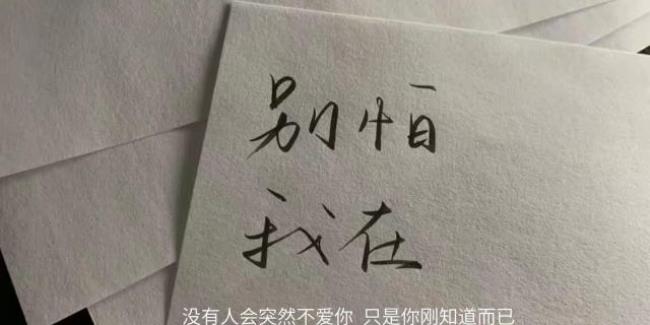 别怕
我在
没有人会突然不爱你 只是你刚知道而已